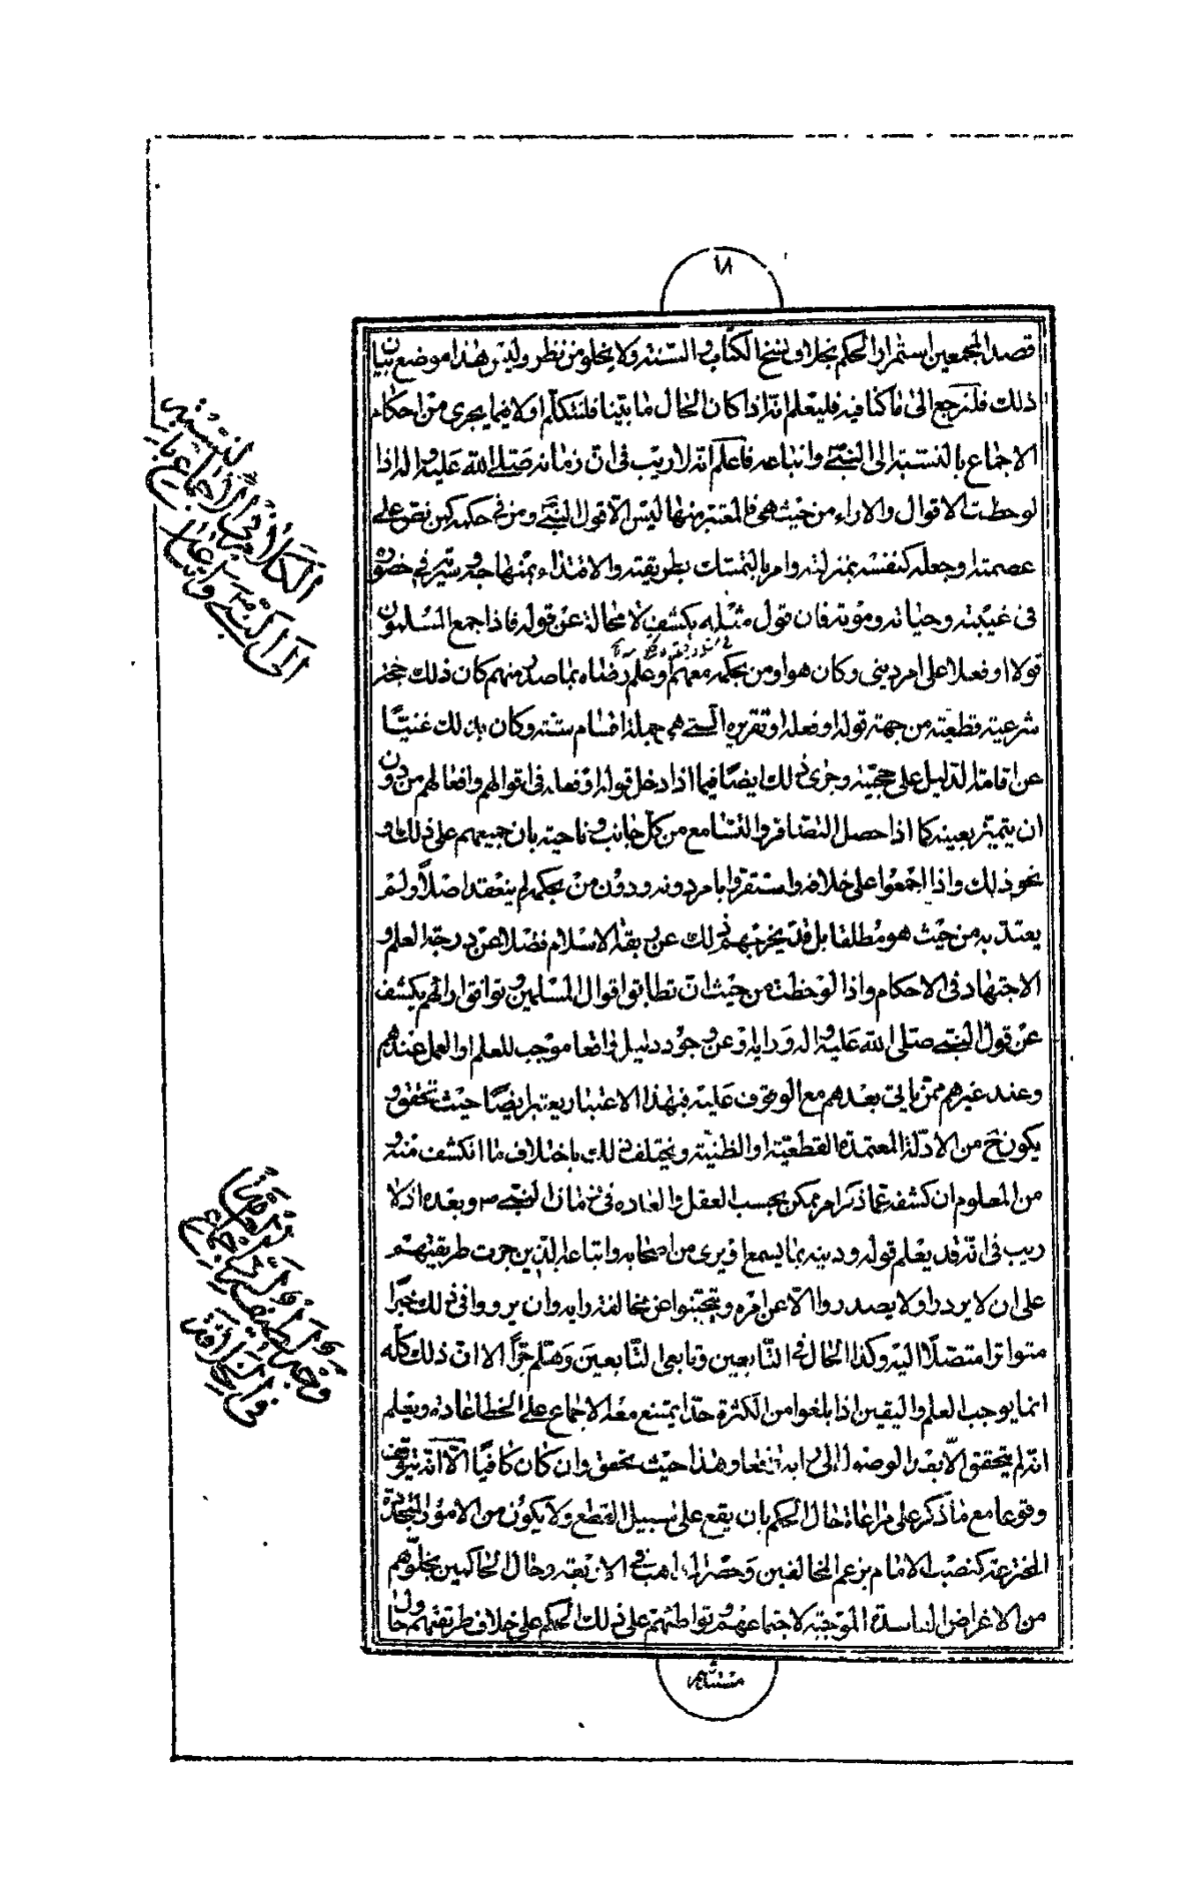 ١٨
قصد المجمعين استمرار الحكم بخلاف نسخ الكتاب والسنة ولا يخلو من نظر وليس هذا موضع بيان
ذلك فلنرجع الى ما كنا فيه فليعلم انه اذا كان الحال ما بيّنا فلنتكلم اولا فيما يجرى من احكام
الاجماع بالنسبة الى النبي واتباعه فاعلم انه لا ريب في ان زمانه صلى الله عليه واله اذا
لوحظت الاقوال والاراء من حيث هى فالمعتبر منها ليس الا قول النبي ومن في حكمه كمن نص على
عصمته او جعله كنفسه بمنزلته وامر بالتمسك بطريقته والاقتداء بمنهاجه وسيرته في حضوره
في غيبته وحياته وموته فان قول مثله يكشف لا محالة عن قوله فاذا جمع المسلمون
قولا او فعلا على امر ديني وكان هو او من بحكمه معهم او علم رضاه بما صدر منهم كان ذلك حجة
شرعية قطعية من جهة قوله او فعله او تقريره التي هي جملة اقسام سنته وكان بذلك غنيّا
عن اقامة الدليل على حجيته وجرى ذلك ايضا فيما اذا دخل قوله او فعله في اقوالهم وافعالهم من دون
ان يتميز بعينه كما اذا حصل التضافر والتسامع من كل جانب وناحية بان جميعهم على ذلك و
نحو ذلك واذا اجمعوا على خلافه واستقروا بامر دونه ودون من بحكمه لم ينعقد اصلا ولم
يعتد به من حيث هو مطلقا بل قد يخرجهم ذلك عن ربقة الاسلام فضلا عن درجة العلم و
الاجتهاد في الاحكام واذا لوحظت من حيث ان تطابق اقوال المسلمين وتوافق ارائهم يكشف
عن قول النبي صلى الله عليه واله ورايه او عن وجود دليل قاطع موجب للعلم او العمل عندهم
وعند غيرهم ممن ياتي بعدهم مع الوقوف عليه فبهذا الاعتبار يعتبر ايضا حيث تحقق و
يكون ح من الادلة المعتمدة القطعية او الظنية ويختلف ذلك باختلاف ما انكشف منه و
من المعلوم ان كشفه عما ذكر امر ممكن بحسب العقل والعادة في زمان النبي ص وبعده اذ لا
ريب في انه قد يعلم قوله ودينه بما يسمع او يرى من اصحابه واتباعه الذين جرت طريقتهم
على ان لا يردوا ولا يصدروا الا عن امره ويتجنبوا عن مخالفة رايه وان يرووا في ذلك خبرا
متواترا متصلا اليه وكذا الحال في التابعين وتابعى التابعين وهلم جرّا الا ان ذلك كله
انما يوجب العلم واليقين اذا بلغوا من الكثرة حدا يمتنع معه الاجماع على الخطا عادة ويعلم
انه لم يتحقق الا بعد الوصول الى رايه قطعا وهذا حيث تحقق وان كان كافيا الا انه يتوقف
وقوعا مع ما ذكر على مراعاة حال الحكم بان يقع على سبيل القطع ولا يكون من الامور المتجددة
المخترعة كنصب الامام بزعم المخالفين وحصر المذاهب في الاربعة وحال الحاكمين بخلوهم
من الاغراض الفاسدة الموجبة لاجتماعهم وتواطئهم على ذلك الحكم على خلاف طريقتهم وحال
مستندهم
الكلام في الاجماع بالنسبة
الى النبي واتباعه